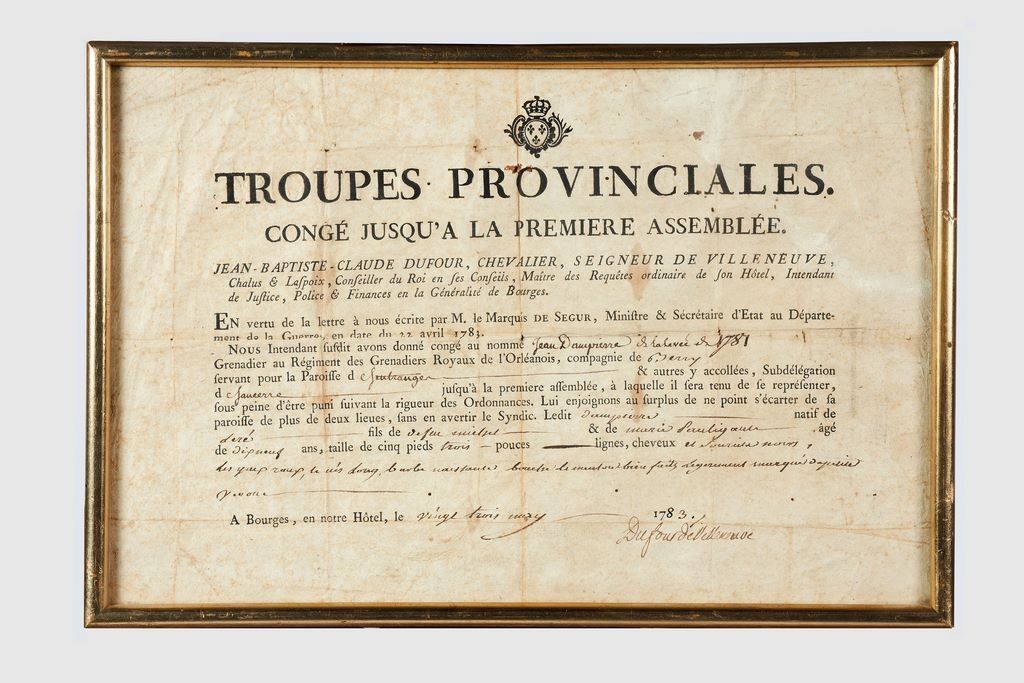 TROUPES PROVINCIALES.
CONGÉ JUSQU'A LA PREMIERE ASSEMBLÉE.
JEAN-BAPTISTE-CLAUDE DUFOUR, CHEVALIER, SEIGNEUR DE VILLENEUVE,
Chalus & Laſpoix, Conſeiller du Roi en ſes Conſeils, Maître des Requêtes ordinaire de ſon Hôtel, Intendant
de Juſtice, Police & Finances en la Généralité de Bourges.
EN vertu de la lettre à nous écrite par M. le Marquis DE SEGUR, Miniſtre & Sécrétaire d'Etat au Départe-
ment de la Guerre, en date du 22 avril 1783.
NOUS Intendant ſuſdit avons donné congé au nommé Jean Dampierre de la levée de 1781
Grenadier au Régiment des Grenadiers Royaux de l'Orléanois, compagnie de
ſervant pour la Paroiſſe d & autres y accollées, Subdélégation
d Sancerre jusqu'à la premiere aſſemblée, à laquelle il ſera tenu de ſe repréſenter,
ſous peine d'être puni ſuivant la rigueur des Ordonnances. Lui enjoignons au ſurplus de ne point s'écarter de ſa
paroiſſe de plus de deux lieues, ſans en avertir le Syndic. Ledit Dampierre natif de
fils de & de marie âgé
de dixneuf ans, taille de cinq pieds trois pouces lignes, cheveux et Sourcils noirs,
les yeux roux, le nés long, barbe naissante bouche le menton bien faits legerement marqué de petite
verole
A Bourges, en notre Hôtel, le vingt trois may 1783.
Dufour de Villeneuve